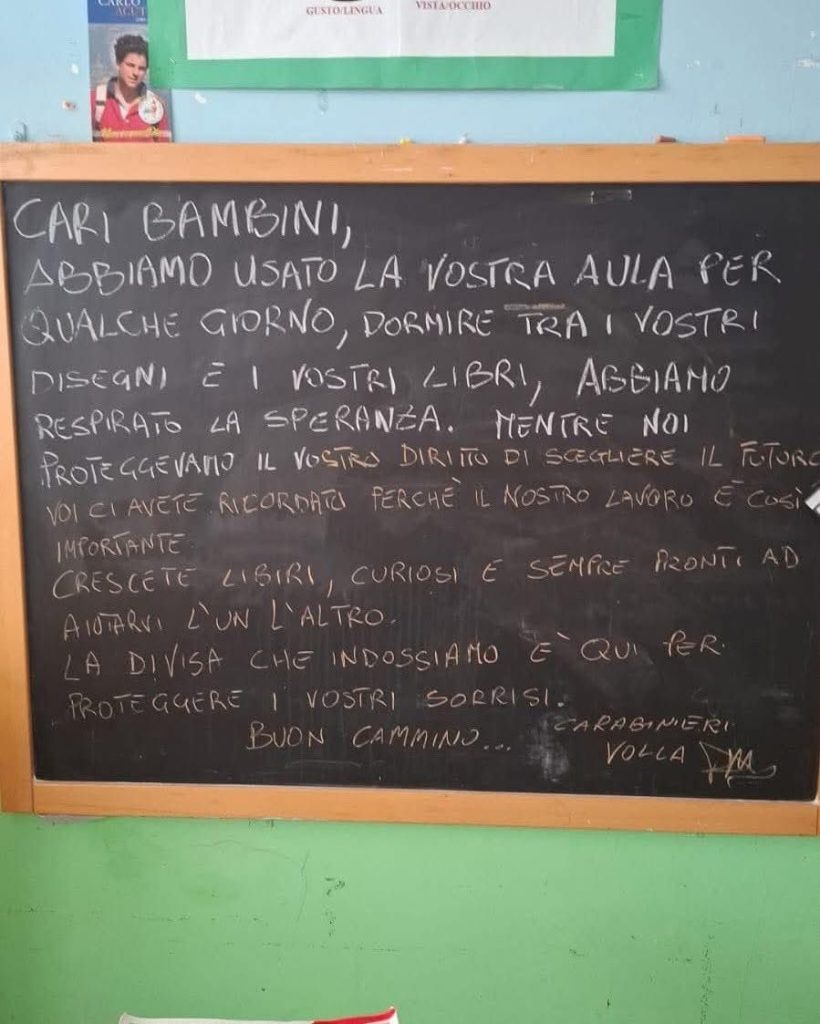 CARLO
ACUT
GUSTO/LINGUA
VISTA/OCCHIO
CARI BAMBINI,
ABBIAMO USATO LA VOSTRA AULA PER
QUALCHE GIORNO, DORMIRE TRA I VOSTRI
DISEGNI E I VOSTRI LIBRI, ABBIAMO
RESPIRATO LA SPERANZA. MENTRE NOI
PROTEGGEVAMO IL VOSTRO DIRITTO DI SCEGLIERE IL FUTURO
VOI CI AVETE RICORDATO PERCHÈ IL NOSTRO LAVORO È COSÌ
IMPORTANTE.
CRESCETE LIBIRI, CURIOSI E SEMPRE PRONTI AD
AIUTARVI L'UN L'ALTRO.
LA DIVISA CHE INDOSSIAMO E' QUI PER
PROTEGGERE I VOSTRI SORRISI.
BUON CAMMINO...
CARABINIERI
VOLLA